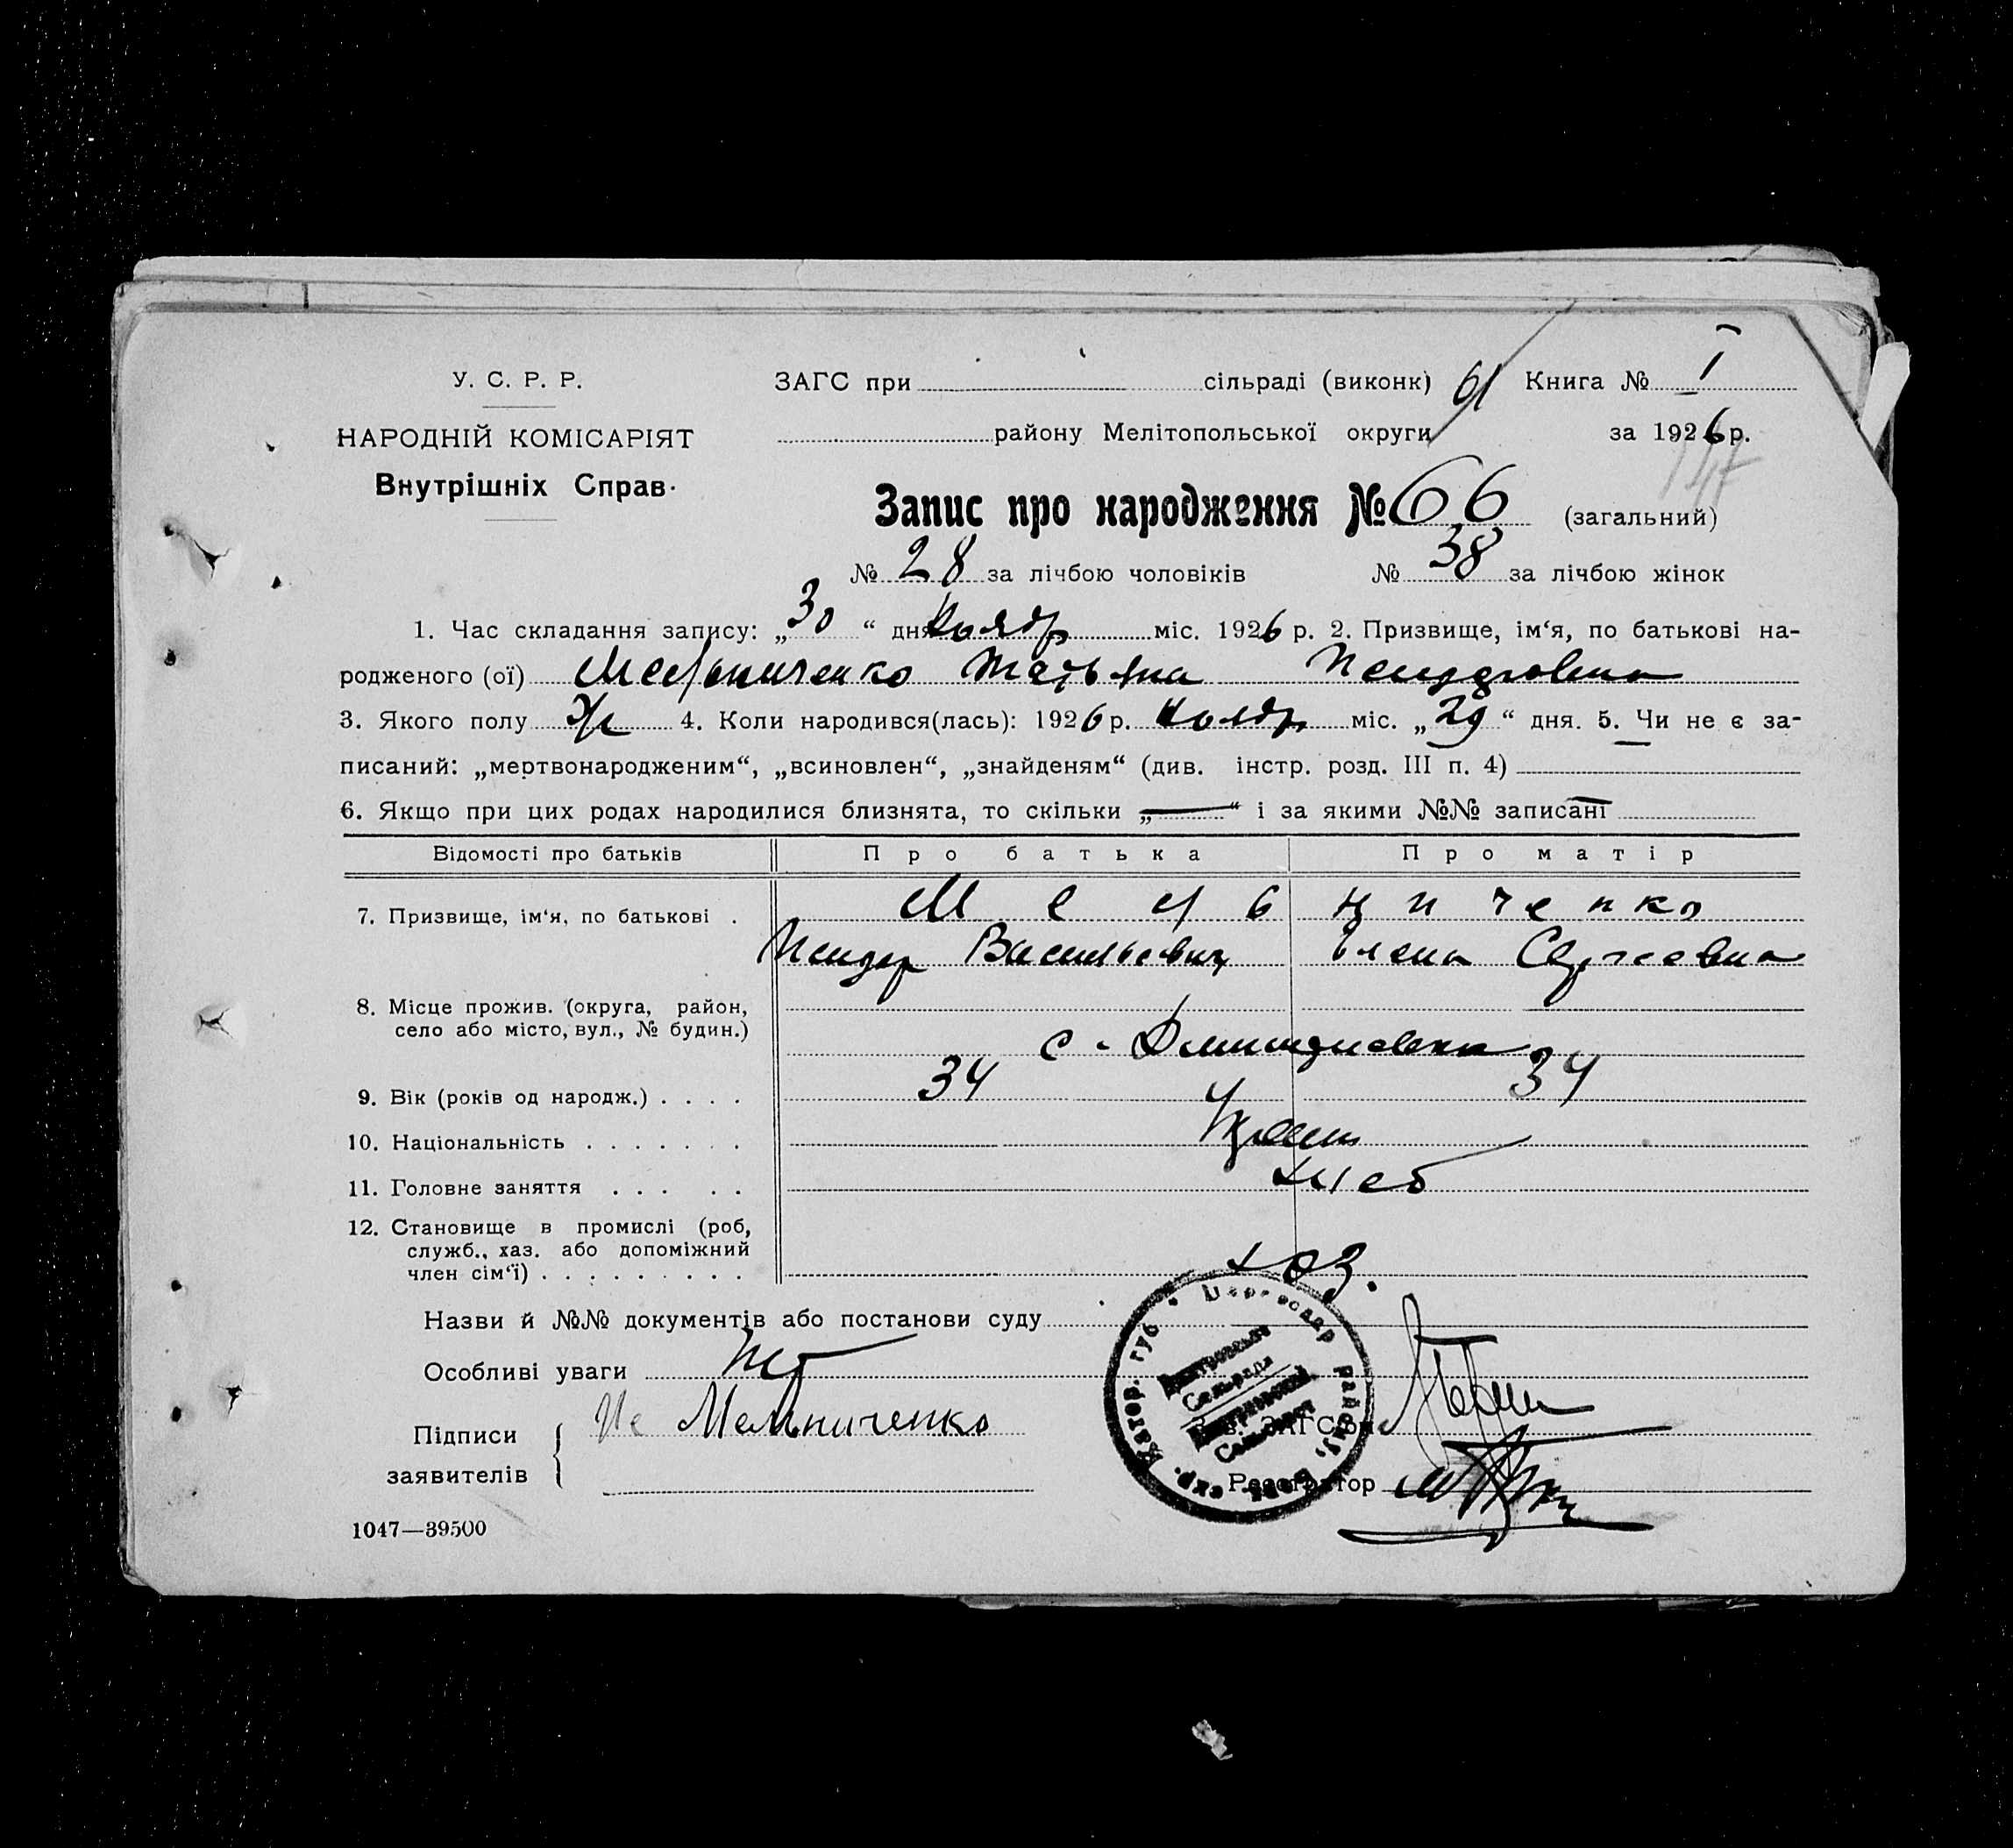 У. С. Р. Р.
НАРОДНІЙ КОМІСАРІЯТ
Внутрішніх Справ.
ЗАГС при сільраді (виконк) 61 Книга № I
району Мелітопольської округи за 1926 р.
147
Запис про народження № 66 (загальний)
№ 28 за лічбою чоловіків № 38 за лічбою жінок
1. Час складання запису: „30“ дня Ноябр міс. 1926 р. 2. Призвище, ім‘я, по батькові на-
родженого (ої) Мельниченко Татьяна
3. Якого полу Ж 4. Коли народився(лась): 1926 р. Ноябр міс. „29“ дня. 5. Чи не є за-
писаний: „мертвонародженим“, „всиновлен“, „знайденям“ (див. інстр. розд. III п. 4)
6. Якщо при цих родах народилися близнята, то скільки „—“ і за якими №№ записані
Відомості про батьків Про батька Про матір
7. Призвище, ім‘я, по батькові . Мельниченко
Васильевич Елена Сергеевна
8. Місце прожив. (округа, район,
село або місто, вул., № будин.)
с. Дмитровка
9. Вік (років од народж.) . . . . 34 34
10. Національність . . . . . . . Украин
11. Головне заняття . . . . . хлеб
12. Становище в промислі (роб,
служб., хаз. або допоміжний
член сім‘ї) . . . . . . . . . хоз.
Назви й №№ документів або постанови суду
Особливі уваги Нет
Підписи
заявителів
Мельниченко
Зав. ЗАГС‘ом
Реєстратор
1047—39500